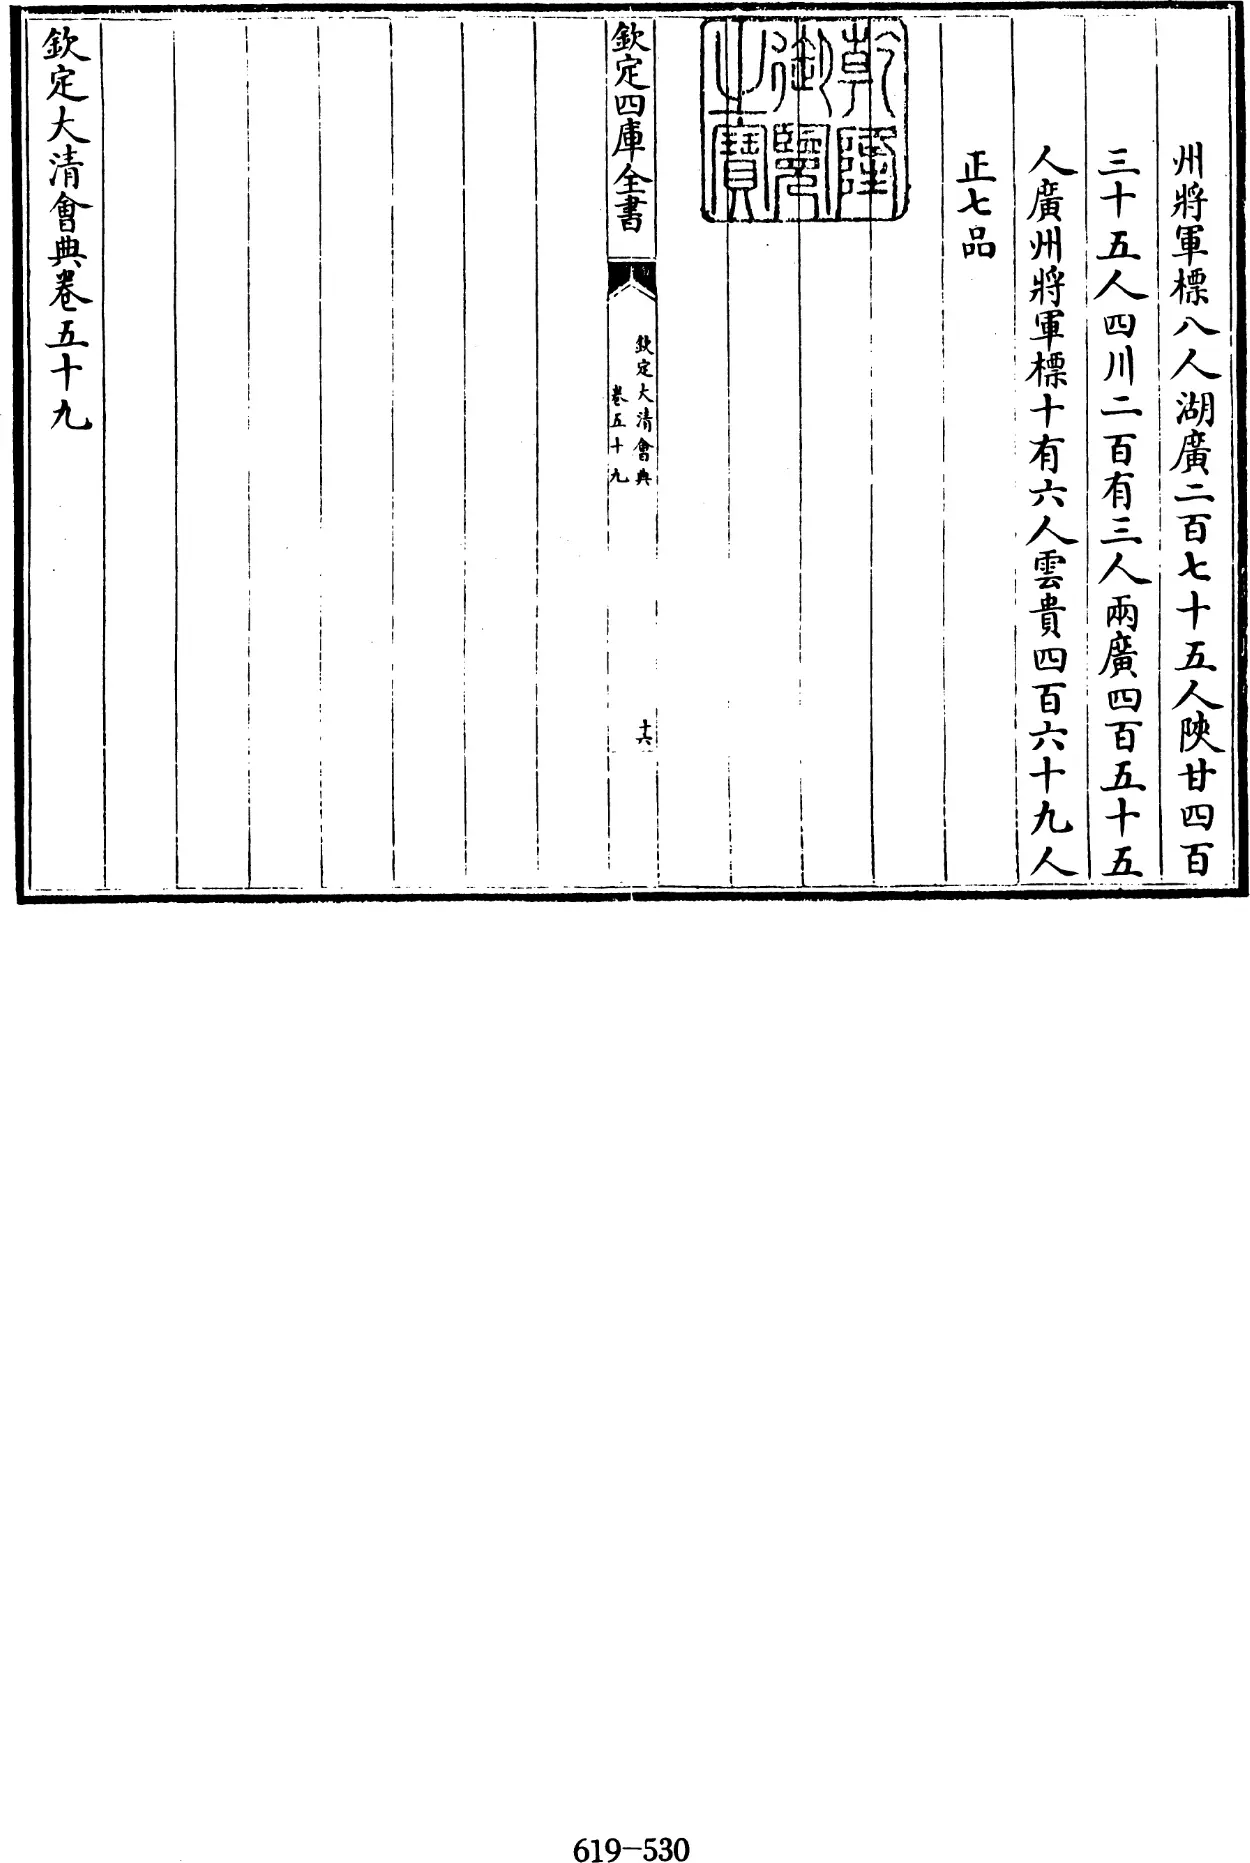 州將軍標八人湖廣二百七十五人陜甘四百
三十五人四川二百有三人兩廣四百五十五
人廣州將軍標十有六人雲貴四百六十九人
正七品
乾隆御覽之寶
欽定四庫全書
欽定大清會典
卷五十九
十六
欽定大清會典卷五十九
619-530